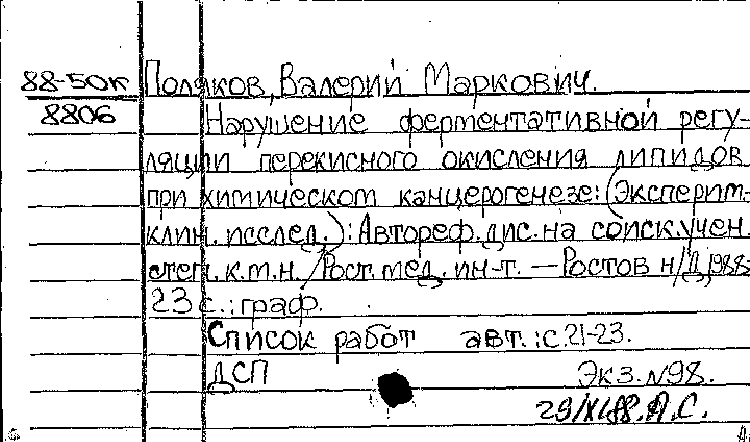 88-50к Поляков, Валерий Маркович.
8806 Нарушение ферментативной регу-
ляции перекисного окисления липидов
при химическом канцерогенезе: (Эксперим.-
клин. исслед.): Автореф. дис. на соиск. учен.
степ. к.м.н. / Рост. мед. ин-т. — Ростов н/Д, 1988-
23 с.: граф.
Список работ авт.: с 21-23.
ДСП Экз. N98.
29/XI-88. А.С.